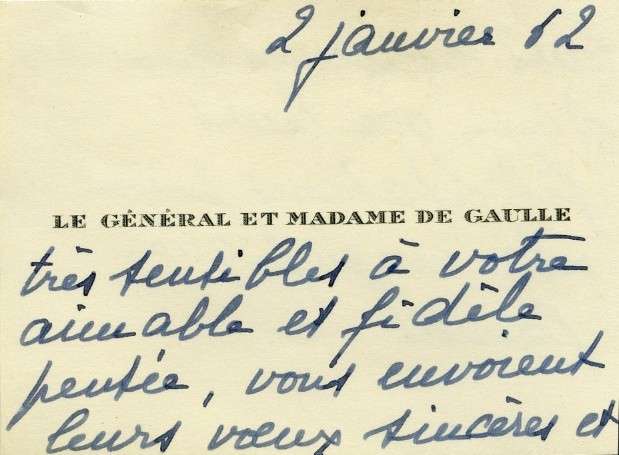 2 janvier 62
LE GÉNÉRAL ET MADAME DE GAULLE
très sensibles à votre
aimable et fidèle
pensée, vous envoient
leurs vœux sincères et